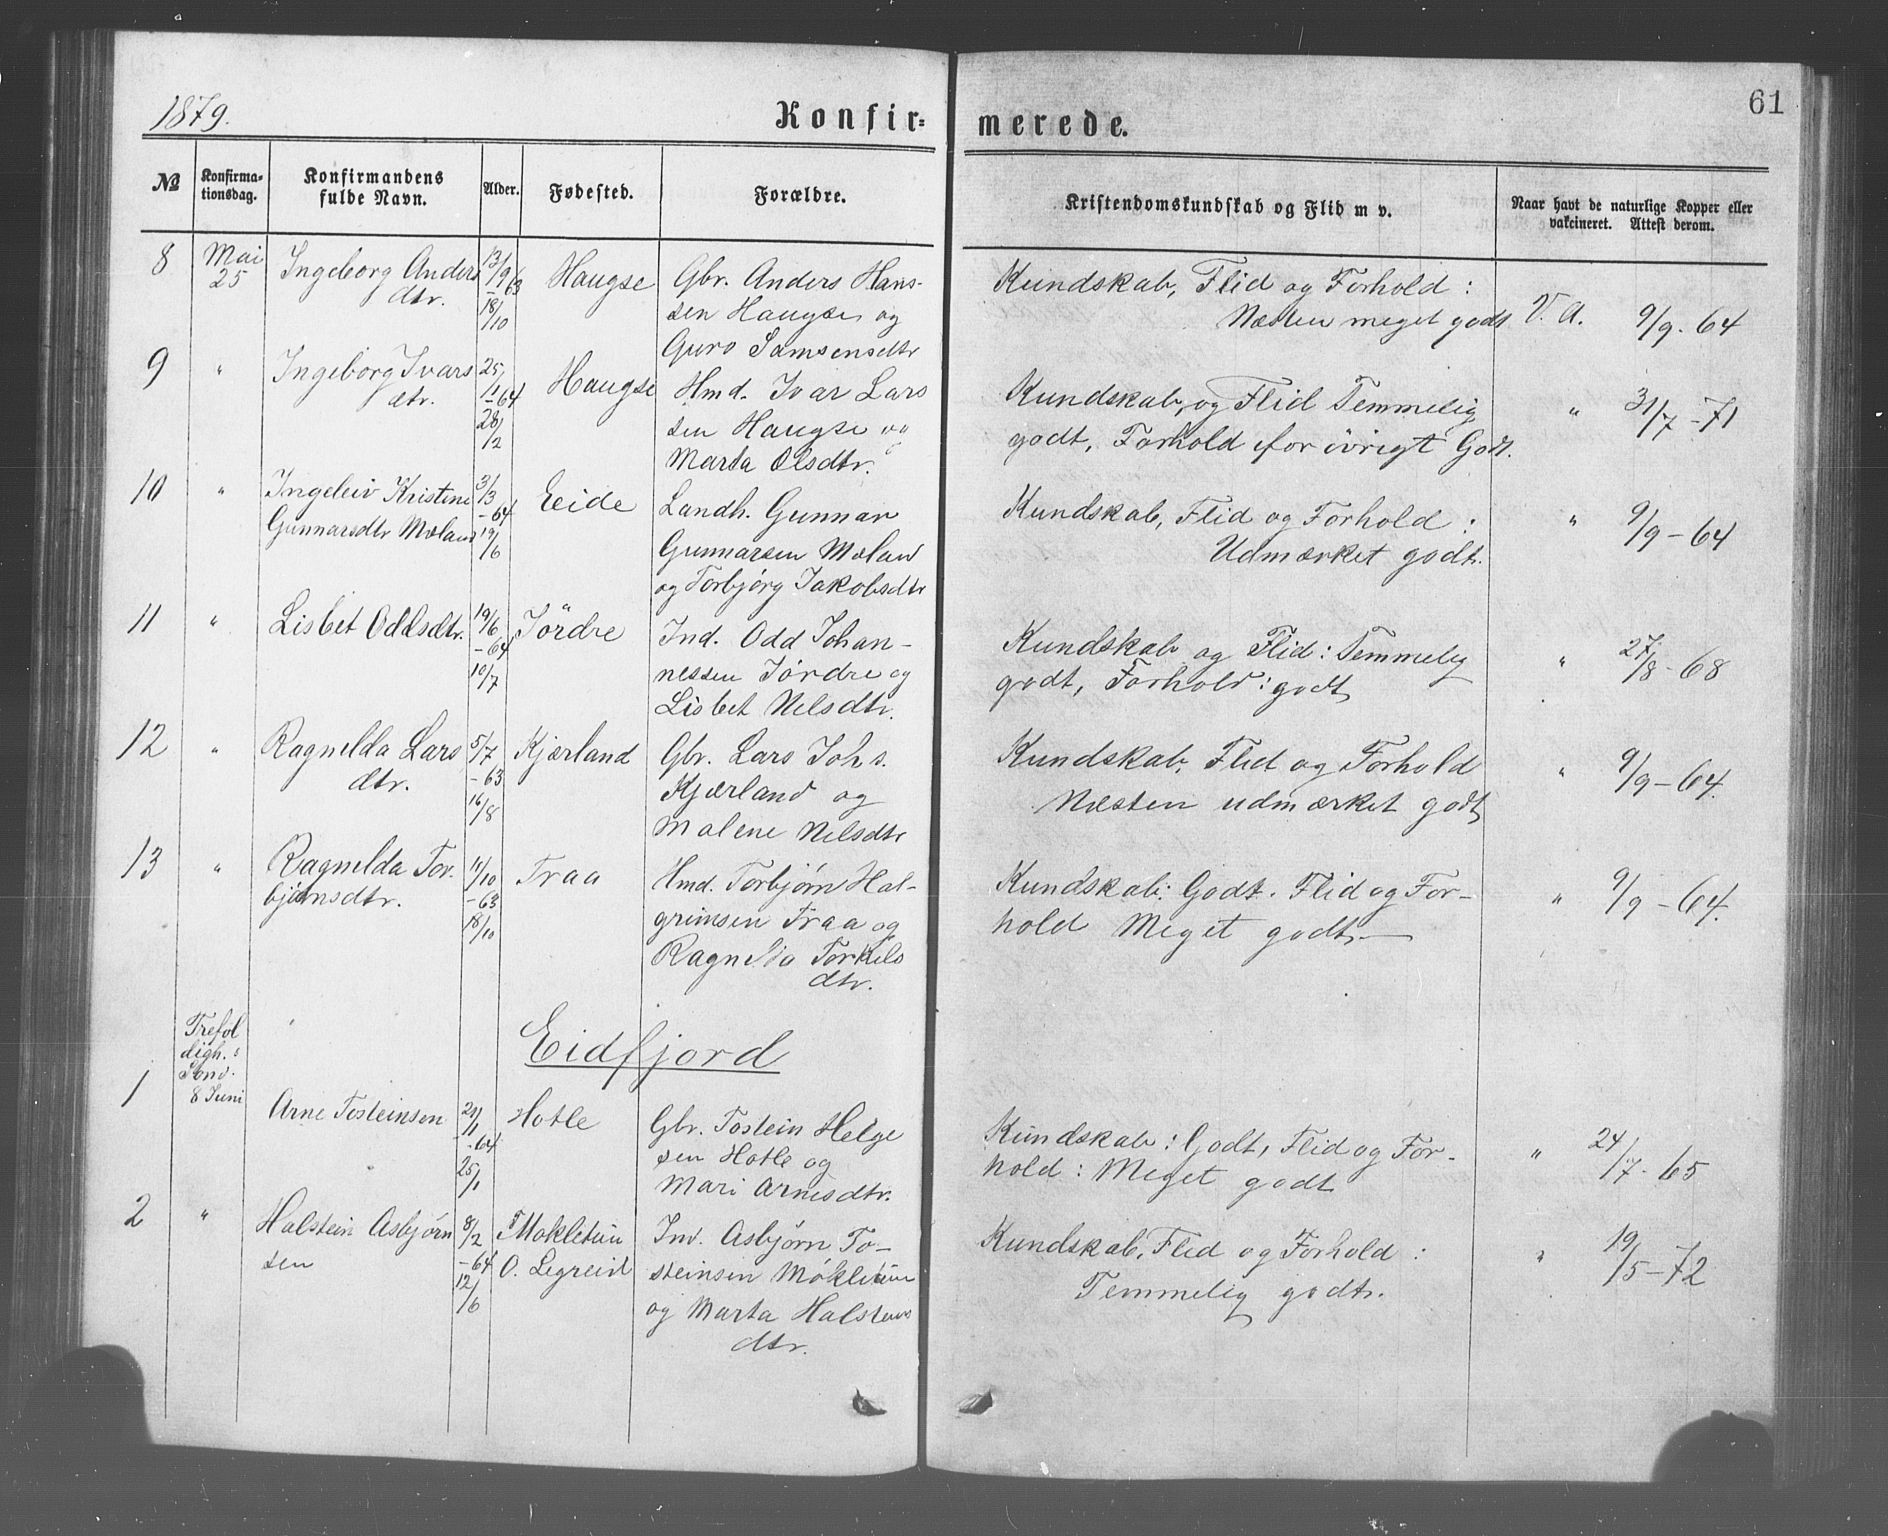 1879.
Konfir=
merede.
61
No
Konfirma-
tionsdag.
Konfirmandens
fulde Navn.
Alder.
Fødested.
Forældre.
Kristendomskundskab og Flid m v.
Naar havt de naturlige Kopper eller
vakcineret. Attest derom.
8 Mai 25 Ingeborg Anders
dtr.
13/9 63
18/10
Haugse
Gbr. Anders Hans-
sen Haugse og
Guro Samsensdtr
Kundskab, Flid og Forhold:
Næsten meget godt
V. A. 9/9. 64
9 " Ingeborg Ivars
dtr.
25/1 -64
28/2
Haugse
Hmd. Ivar Lars
sen Haugse og
Marta Olsdtr.
Kundskab og Flid Temmelig
godt, Forhold for övrigt Godt.
" 31/7 -71
10 " Ingeleiv Kristine
Gunnarsdtr Mæland
3/3 -64
19/6
Eide
Landh. Gunnar
Gunnarsen Mæland
og Torbjørg Jakobsdtr
Kundskab, Flid og Forhold:
Udmærket godt.
" 9/9 -64
11 " Lisbet Oddsdtr.
19/6 -64
10/7
Jördre
Ind. Odd Johan-
nessen Jördre og
Lisbet Nelsdtr.
Kundskab og Flid: Temmelig
godt, Forhold: godt
" 27/8 -68
12 " Ragnelda Lars
dtr.
5/7 -63
16/8
Kjærland
Gbr. Lars Johs.
Kjærland og
Malene Nilsdtr
Kundskab, Flid og Forhold
Næsten udmærket godt
" 9/9 -64.
13 " Ragnelda Tor-
bjørnsdtr.
11/10 -63
18/10
Traa
Hmd. Torbjørn Hal-
grimsen Traa og
Ragnelda Torkils
dtr.
Kundskab: Godt. Flid og For-
hold Meget godt.
" 9/9 -64.
Eidfjord
Trefol
digh.s
Sönd.
8 Juni
1 Arne Tosteinsen
-64
25/1
Hotle
Gbr. Tostein Helge
sen Hotle og
Mari Arnesdtr.
Kundskab: Godt, Flid og For-
hold: Meget godt
" 24/7 -65
2 " Halstein Asbjørn
sen
8/2 -64
12/6
Mökletun
O. Legreid
Ind. Asbjørn To-
steinsen Mökletun
og Marta Halsteins
dtr.
Kundskab, Flid og Forhold:
Temmelig godt.
" 19/5 -72